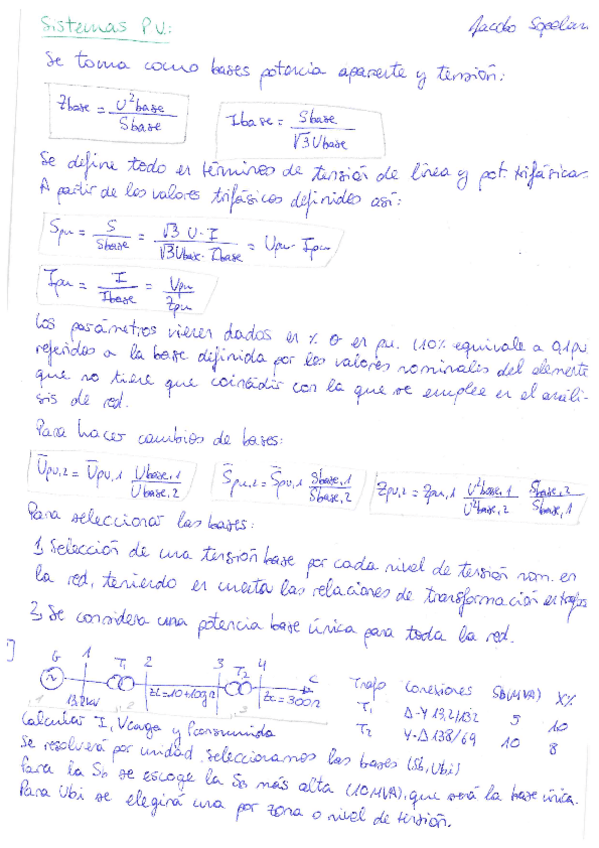 Sistemas P.U.:
Jacobo
Se toma como bases potencia aparente y tensión:
Zbase = U²base / Sbase
Ibase = Sbase / √3 Ubase
Se define todo en términos de tensión de línea y pot. trifásica.
A partir de los valores trifásicos definidos así:
Spu = S / Sbase = √3 U·I / √3 Ubase·Ibase = Upu·Ipu
Ipu = I / Ibase = Upu / Zpu
Los parámetros vienen dados en % o en pu. (10% equivale a 0,1pu)
referidos a la base definida por los valores nominales del elemento
que no tiene que coincidir con la que se emplee en el análi-
sis de red.
Para hacer cambios de bases:
Upu,2 = Upu,1 Ubase,1 / Ubase,2
Spu,2 = Spu,1 Sbase,1 / Sbase,2
Zpu,2 = Zpu,1 U²base,1 / U²base,2 Sbase,2 / Sbase,1
Para seleccionar las bases:
1, Selección de una tensión base por cada nivel de tensión nom. en
la red, teniendo en cuenta las relaciones de transformación en trafos
2, Se considera una potencia base única para toda la red.
G 1 T1 2 3 T2 4 C
13,2kV ZL=10+j09Ω Zc=300Ω
Trafo Conexiones Sb(MVA) X%
T1 Δ-Y 13,2/132 5 10
T2 Y-Δ 138/69 10 8
Calcular I, Vcarga y Pconsumida
Se resolverá por unidad, seleccionamos las bases (Sb, Ubi)
Para la Sb se escoge la Sb más alta (10MVA), que será la base única.
Para Ubi se elegirá una por zona o nivel de tensión.